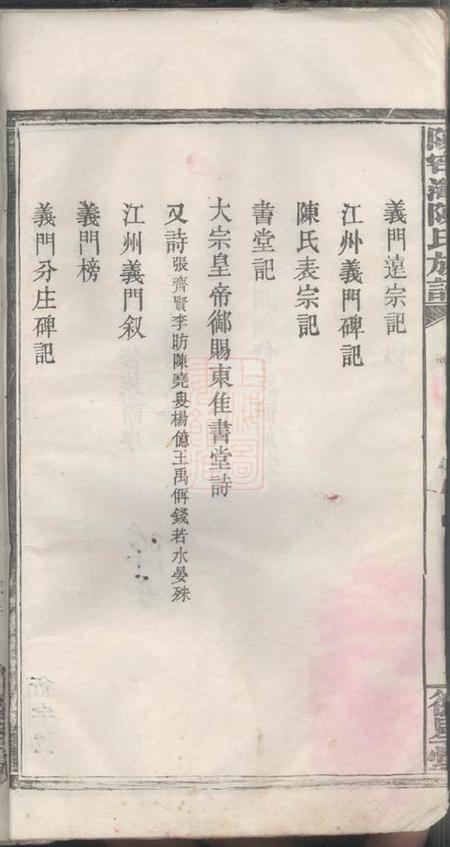 義門遠宗記
江州義門碑記
陳氏表宗記
書堂記
大宗皇帝御賜東佳書堂詩
又詩張齊賢李昉陳堯叟楊億王禹偁錢若水晏殊
江州義門叙
義門榜
義門分庄碑記
陳氏族譜